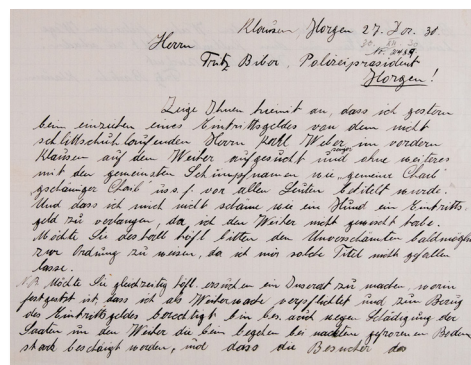 Klausen Horgen 27. Dez. 30.
30. XII 30
Nr. 2439
Herrn
Fritz Biber, Polizeipräsident
Horgen!
Zeige Ihnen hiemit an, dass ich gestern
beim einziehen eines Eintrittsgeldes von dem nicht
schlittschuhlaufenden Herrn Karl Weber, im vordern
Klausen auf dem Weiher aufgesucht und ohne weiteres
mit den gemeinsten Schimpfnamen wie „gemeine Chaib"
gschäniger Chaib u.s.f. vor allen Leuten betitelt wurde.
Und dass ich mich nicht schäme wie ein Hund ein Eintritts-
geld zu verlangen, da ich den Weiher nicht gewischt habe.
Möchte Sie deshalb höfl. bitten den Unverschämten baldmöglichst
zur Ordnung zu weisen, da ich mir solche Titel nicht gefallen
lasse.
NB. Möchte Sie gleichzeitig höfl. ersuchen ein Inserat zu machen, worin
festgesetzt ist, dass ich als Weiherwache verpflichtet und zum Bezug
des Eintrittsgeldes berechtigt bin bes. auch wegen Schädigung der
Saaten um den Weiher die beim begehen bei gefrorenen Boden
stark beschädigt werden, und dass die Besucher des